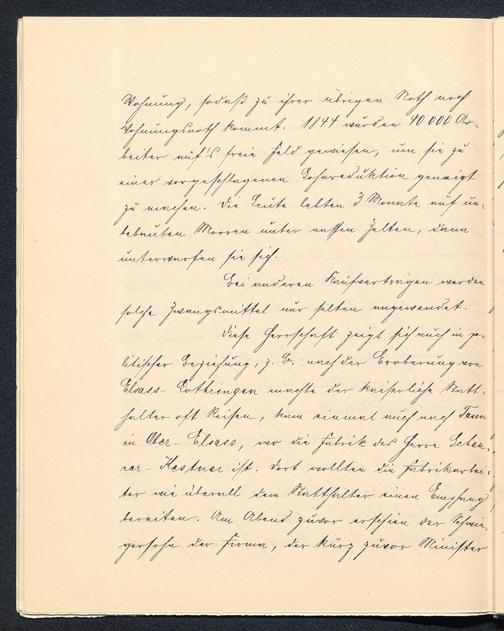 Wohnung, sodaß zu ihrer übrigen Noth noch
Wohnungsnoth kommt. 1844 wurden 40 000 Ar-
beiter auf's freie Feld gewiesen, um sie zu
einer vorgeschlagenen Lohnreduktion geneigt
zu machen. Die Leute lebten 3 Monate auf un-
bebauten Mooren unter nassen Zelten, dann
unterwarfen sie sich.
Bei anderen Kaufverträgen werden
solche Zwangsmittel nur selten angewendet.
Diese Herrschaft zeigt sich auch in po-
litischer Beziehung, z. B. nach der Eroberung von
Elsass-Lothringen machte der kaiserliche Statt-
halter oft Reisen, kam einmal auch nach Tann
in Ober-Elsass, wo die Fabrik des Herrn Scheu-
rer-Kestner ist. Dort wollten die Fabrikarbei-
ter wie überall dem Statthalter einen Empfang
bereiten. Am Abend zuvor erschien der Schwie-
gersohn der Firma, der kurz zuvor Minister